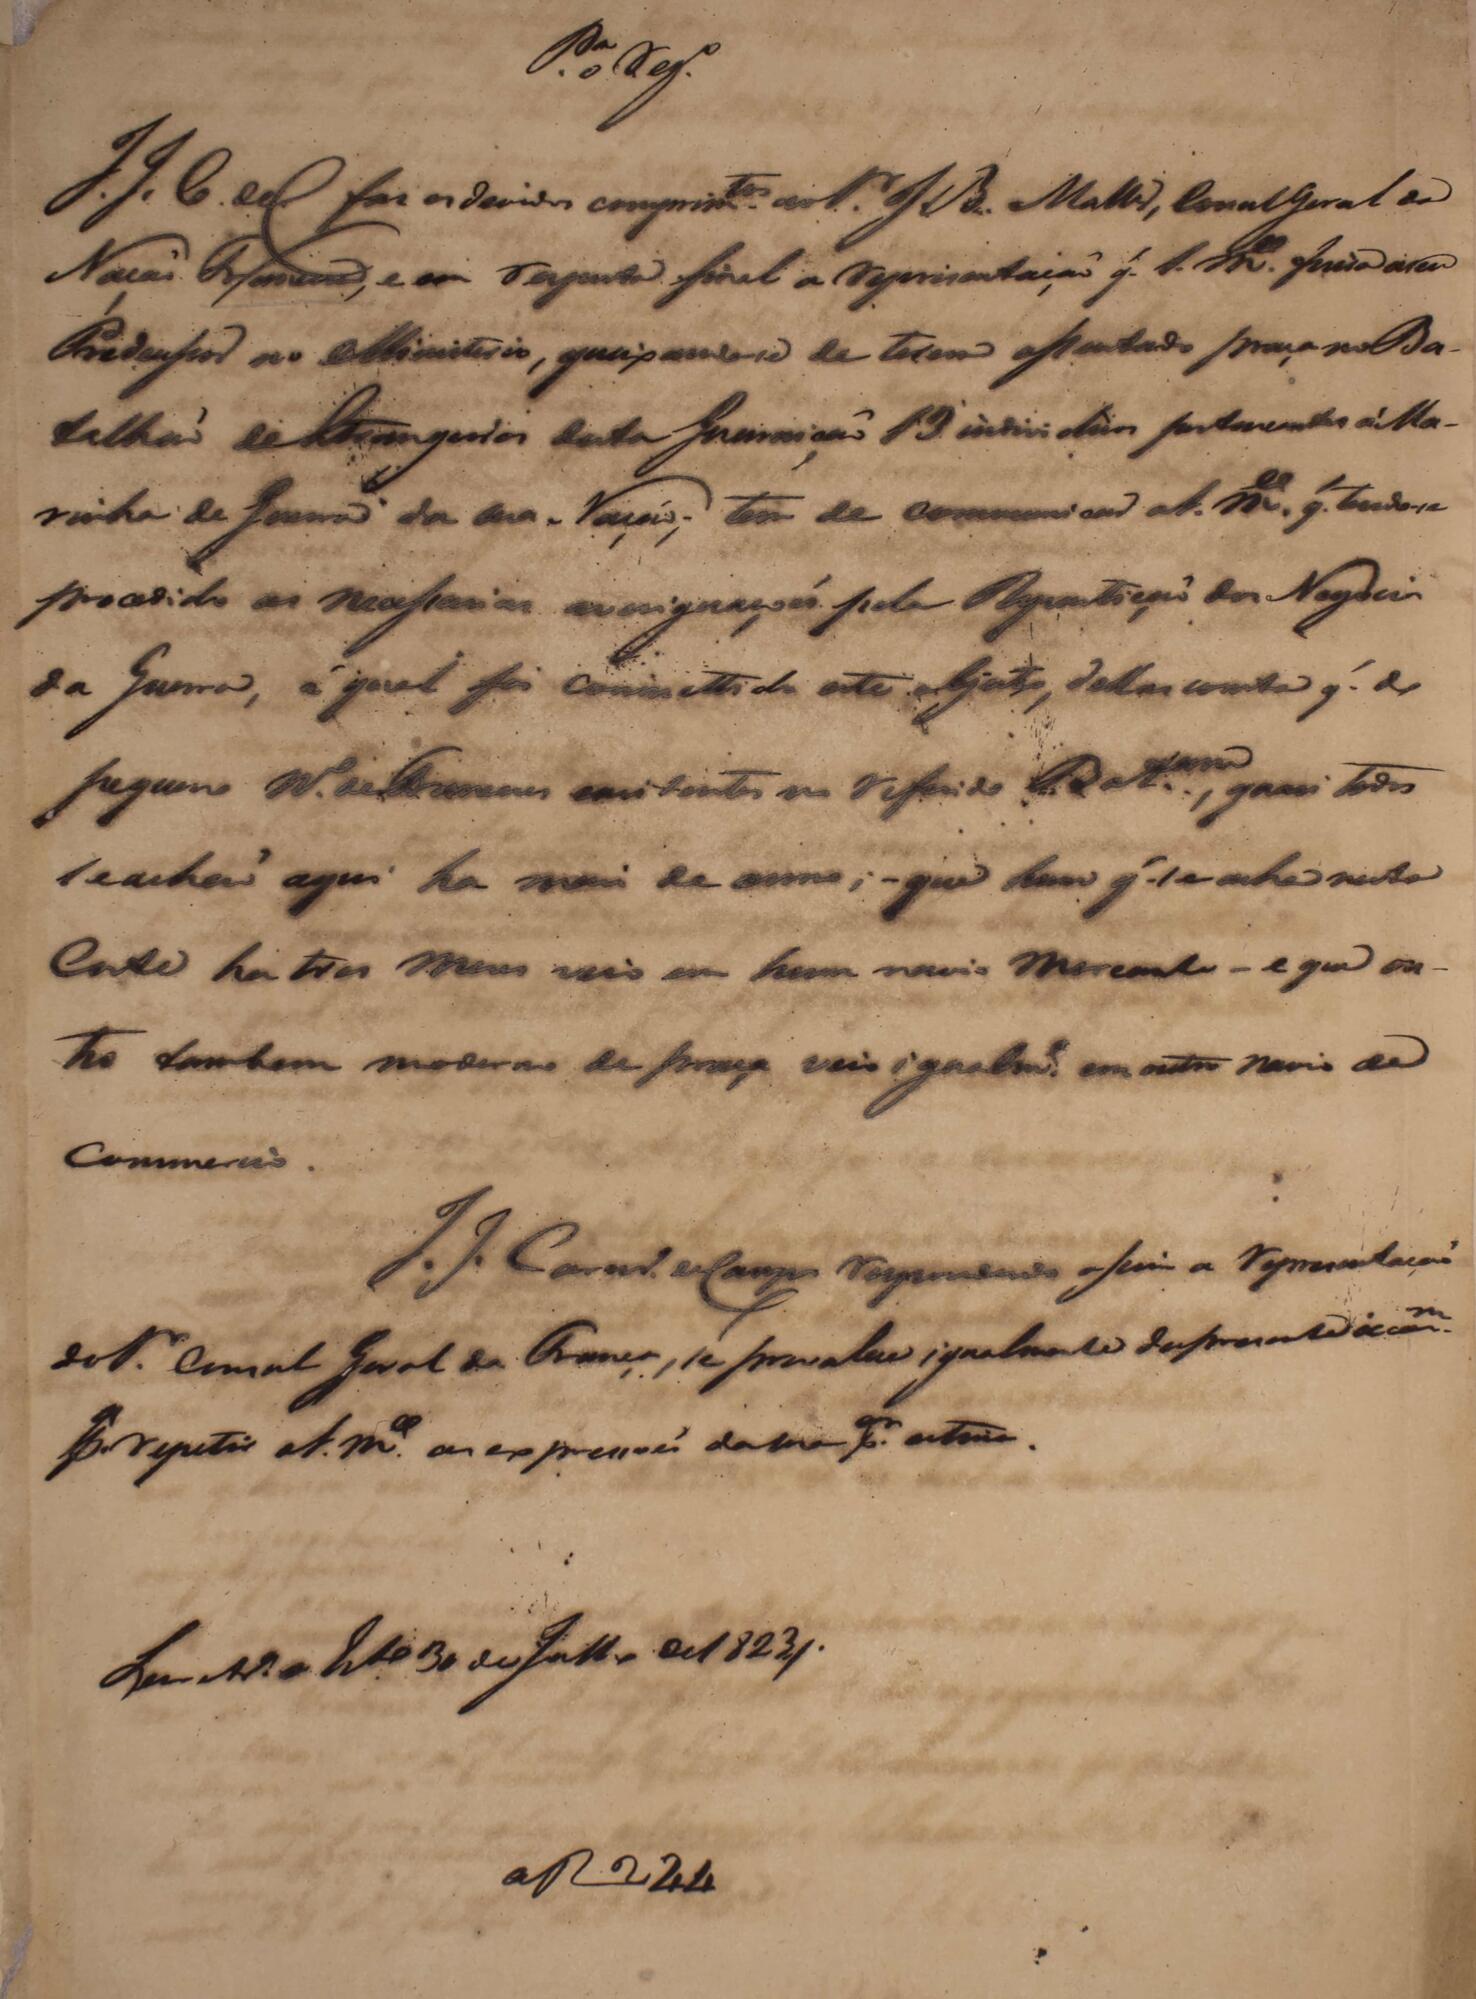 P.ª o Reg.º
J. J. C. de C faz os devidos comprim.tos ao S.r J. B. Maller, Consul Geral da
Nação Franceza, e em resposta final a representação q. S. M.ce fizera a seu
Predecessor no Ministerio, queixando-se de terem assentado praça no Ba-
talhaõ de Estrangeiros desta Guarnição 13 individuos pertencentes á Ma-
rinha de Guerra da sua Nação, tem de communicar a S. M.ce q. tendo-se
procedido as necessarias averiguações pela Repartição dos Negocios
da Guerra, á qual foi commettido este objecto, dellas consta q. do
pequeno N.º de Francezes existentes no referido Bat.am, quasi todos
se achaõ aqui ha mais de anno; - que hum q. se acha nesta
Corte ha tres mezes veio em hum navio Mercante - e que ou-
tro tambem moderno de praça veio igualm.e em outro navio de
Commercio.
J. J. Carnr.º de Campos respondendo assim a representação
do S.r Consul Geral da França, se prevalece igualmente da presente occam.
p.ª repetir a S. M.ce as expressões da sua p.r estima.
30 de Julho de 1823.
224